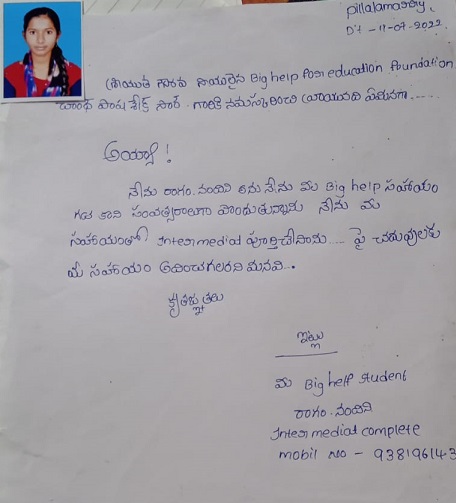 pillalamarry,
Dt - 11-07-2022
గౌరవ Big help For education Foundation
చాంద్ పాషు షేక్ సార్. గారికి నమస్కరించి వ్రాయునది ఏమనగా.....
అయ్యా!
నేను రంగం.నందిని అను నేను మీ Big help సహాయం
గత కాని సంవత్సరాలుగా పొందుతున్నాను నేను మీ
సహాయంతో Intermediat పూర్తిచేసినాను.... పై చదువులకు
మీ సహాయం అందించగలరని మనవి..
కృతజ్ఞతలు
ఇట్లు
మీ Big help student
రంగం.నందిని
Intermediat complete
mobil no - 938196143